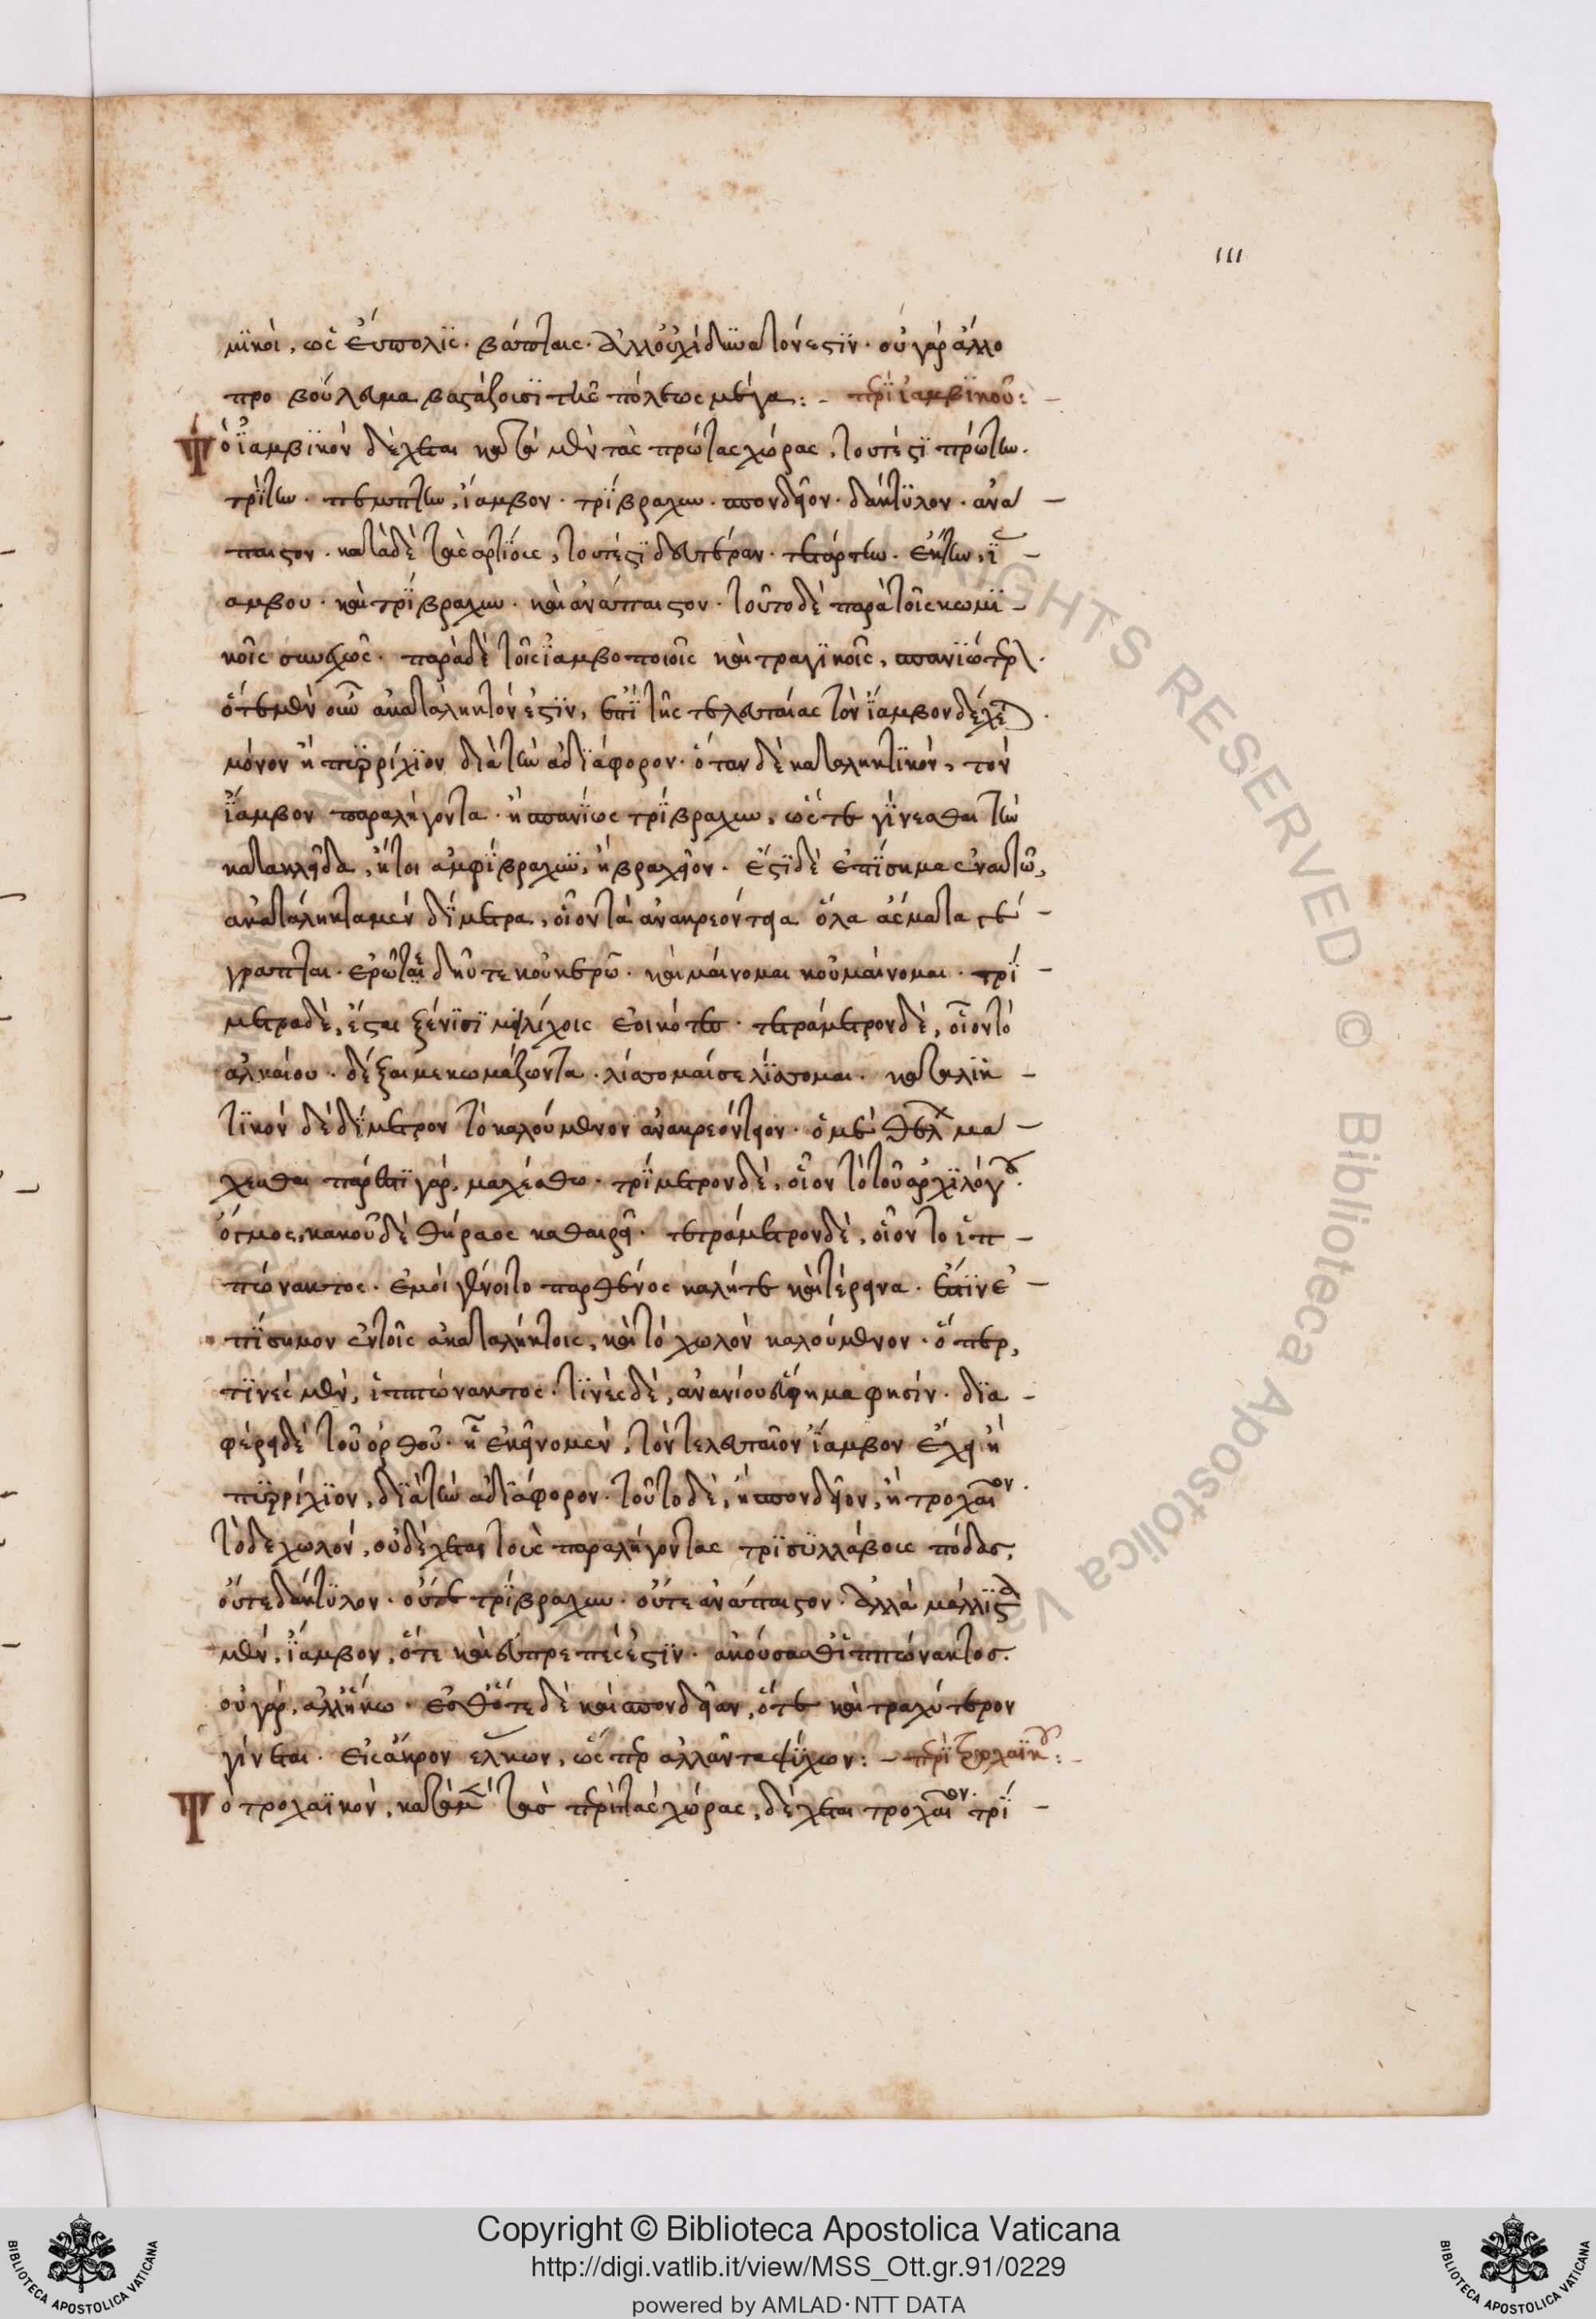 111
μϊκοὶ, ὡς Εὔπολϊς. βάπταις. ἀλλ' οὐχὶ δϋνατόν ἐστϊν. οὐ γὰρ ἄλλο
προβούλευμα βαστάζουσϊ τῆς πόλεως μέγα: - περὶ ἰαμβϊκοῦ: -
Τὸ ἰαμβϊκὸν δέχεται κατὰ μὲν τὰς πρώτας χώρας, τουτέστϊ πρώτην.
τρίτην. πέμπτην, ἴαμβον. τρίβραχυν. σπονδεῖον. δάκτϋλον. ἀνά -
παιστον. κατὰ δὲ τὰς ἀρτίους, τουτέστϊ δευτέραν. τετάρτην. ἕκτην, ἴ -
αμβον. καὶ τρίβραχυν. καὶ ἀνάπαιστον. τοῦτο δὲ παρὰ τοῖς κωμϊ -
κοῖς συνεχῶς. παρὰ δὲ τοῖς ἰαμβοποιοῖς καὶ τραγϊκοῖς, σπανιώτερον.
ὅτε μὲν οὖν ἀκατάληκτόν ἐστϊν, ἐπὶ τῆς τελευταίας τὸν ἴαμβον δέχεται
μόνον ἢ πϋρρίχϊον διὰ τὴν ἀδϊάφορον. ὅταν δὲ καταληκτϊκὸν, τὸν
ἴαμβον παραλήγοντα. ἢ σπανίως τρίβραχυν, ὥστε γίνεσθαι τὴν
κατακλεῖδα, ἤτοι ἀμφίβραχυν, ἢ βραχεῖον. ἔστϊ δὲ ἐπίσημα ἐν αὐτῶ,
ἀκατάληκτα μὲν δίμετρα, οἷον τὰ ἀνακρεόντεια ὅλα ἄσματα γέ -
γραπται. ἐρῶ τε δηῦτε κοὐκ ἐρῶ. καὶ μαίνομαι κοὐ μαίνομαι. τρί -
μετρα δὲ, ἔσται ξένϊσϊ μειλίχοις ἐοικότες. τετράμετρον δὲ, οἷον τὸ
ἀλκαίου. δέξαι με κωμάζοντα. λίσσομαί σε λίσσομαι. καταλϊκ -
τϊκὸν δὲ δίμετρον τὸ καλούμενον ἀνακρεόντειον. ὁ μὲν θέλων μά -
χεσθαι πάρεστϊ γὰρ, μαχέσθω. τρίμετρον δὲ, οἷον τὸ τοῦ ἀρχϊλόχου.
ὅτμος, κακοῦ δὲ θήραος καθαιρεῖ. τετράμετρον δὲ, οἷον τὸ ἱπ -
πώνακτος. ἐμοὶ γένοιτο παρθένος καλή τε καὶ τέρεινα. ἔστιν ἐ -
πίσημον ἐν τοῖς ἀκαταλήκτοις, καὶ τὸ χωλὸν καλούμενον. ὅπερ,
τϊνὲς μὲν, ἱππώνακτος. τϊνὲς δὲ, ἀνανίου εὕρημα φησίν. δϊα -
φέρει δὲ τοῦ ὀρθοῦ. ἧ ἐκεῖνο μὲν, τὸν τελευταῖον ἴαμβον ἔχει ἢ
πϋρρίχϊον, δϊὰ τὴν ἀδϊάφορον. τοῦτο δὲ, ἢ σπονδεῖον, ἢ τροχαῖον.
τὸ δὲ χωλὸν, οὐ δέχεται τοὺς παραλήγοντας τρϊσϋλλάβους πόδας,
οὔτε δάκτϋλον. οὔτε τρίβραχυν. οὔτε ἀνάπαιστον. ἀλλὰ μάλϊστα
μὲν, ἴαμβον, ὅτε καὶ εὐπρεπές ἐστϊν. ἀκούσαθ' ἱππώνακτος.
οὐ γὰρ, ἀλλ' ἥκω. ἔσθ' ὅτε δὲ καὶ σπονδεῖον, ὅτε καὶ τραχύτερον
γίνεται. εἰς ἄκρον ἕλκων, ὥσπερ ἀλλᾶντα ψύχων: - περὶ τροχαϊκοῦ: -
Τὸ τροχαϊκὸν, κατὰ μὲν τὰς περιττὰς χώρας, δέχεται τροχαῖον. τρί -
Copyright © Biblioteca Apostolica Vaticana
http://digi.vatlib.it/view/MSS_Ott.gr.91/0229
powered by AMLAD·NTT DATA